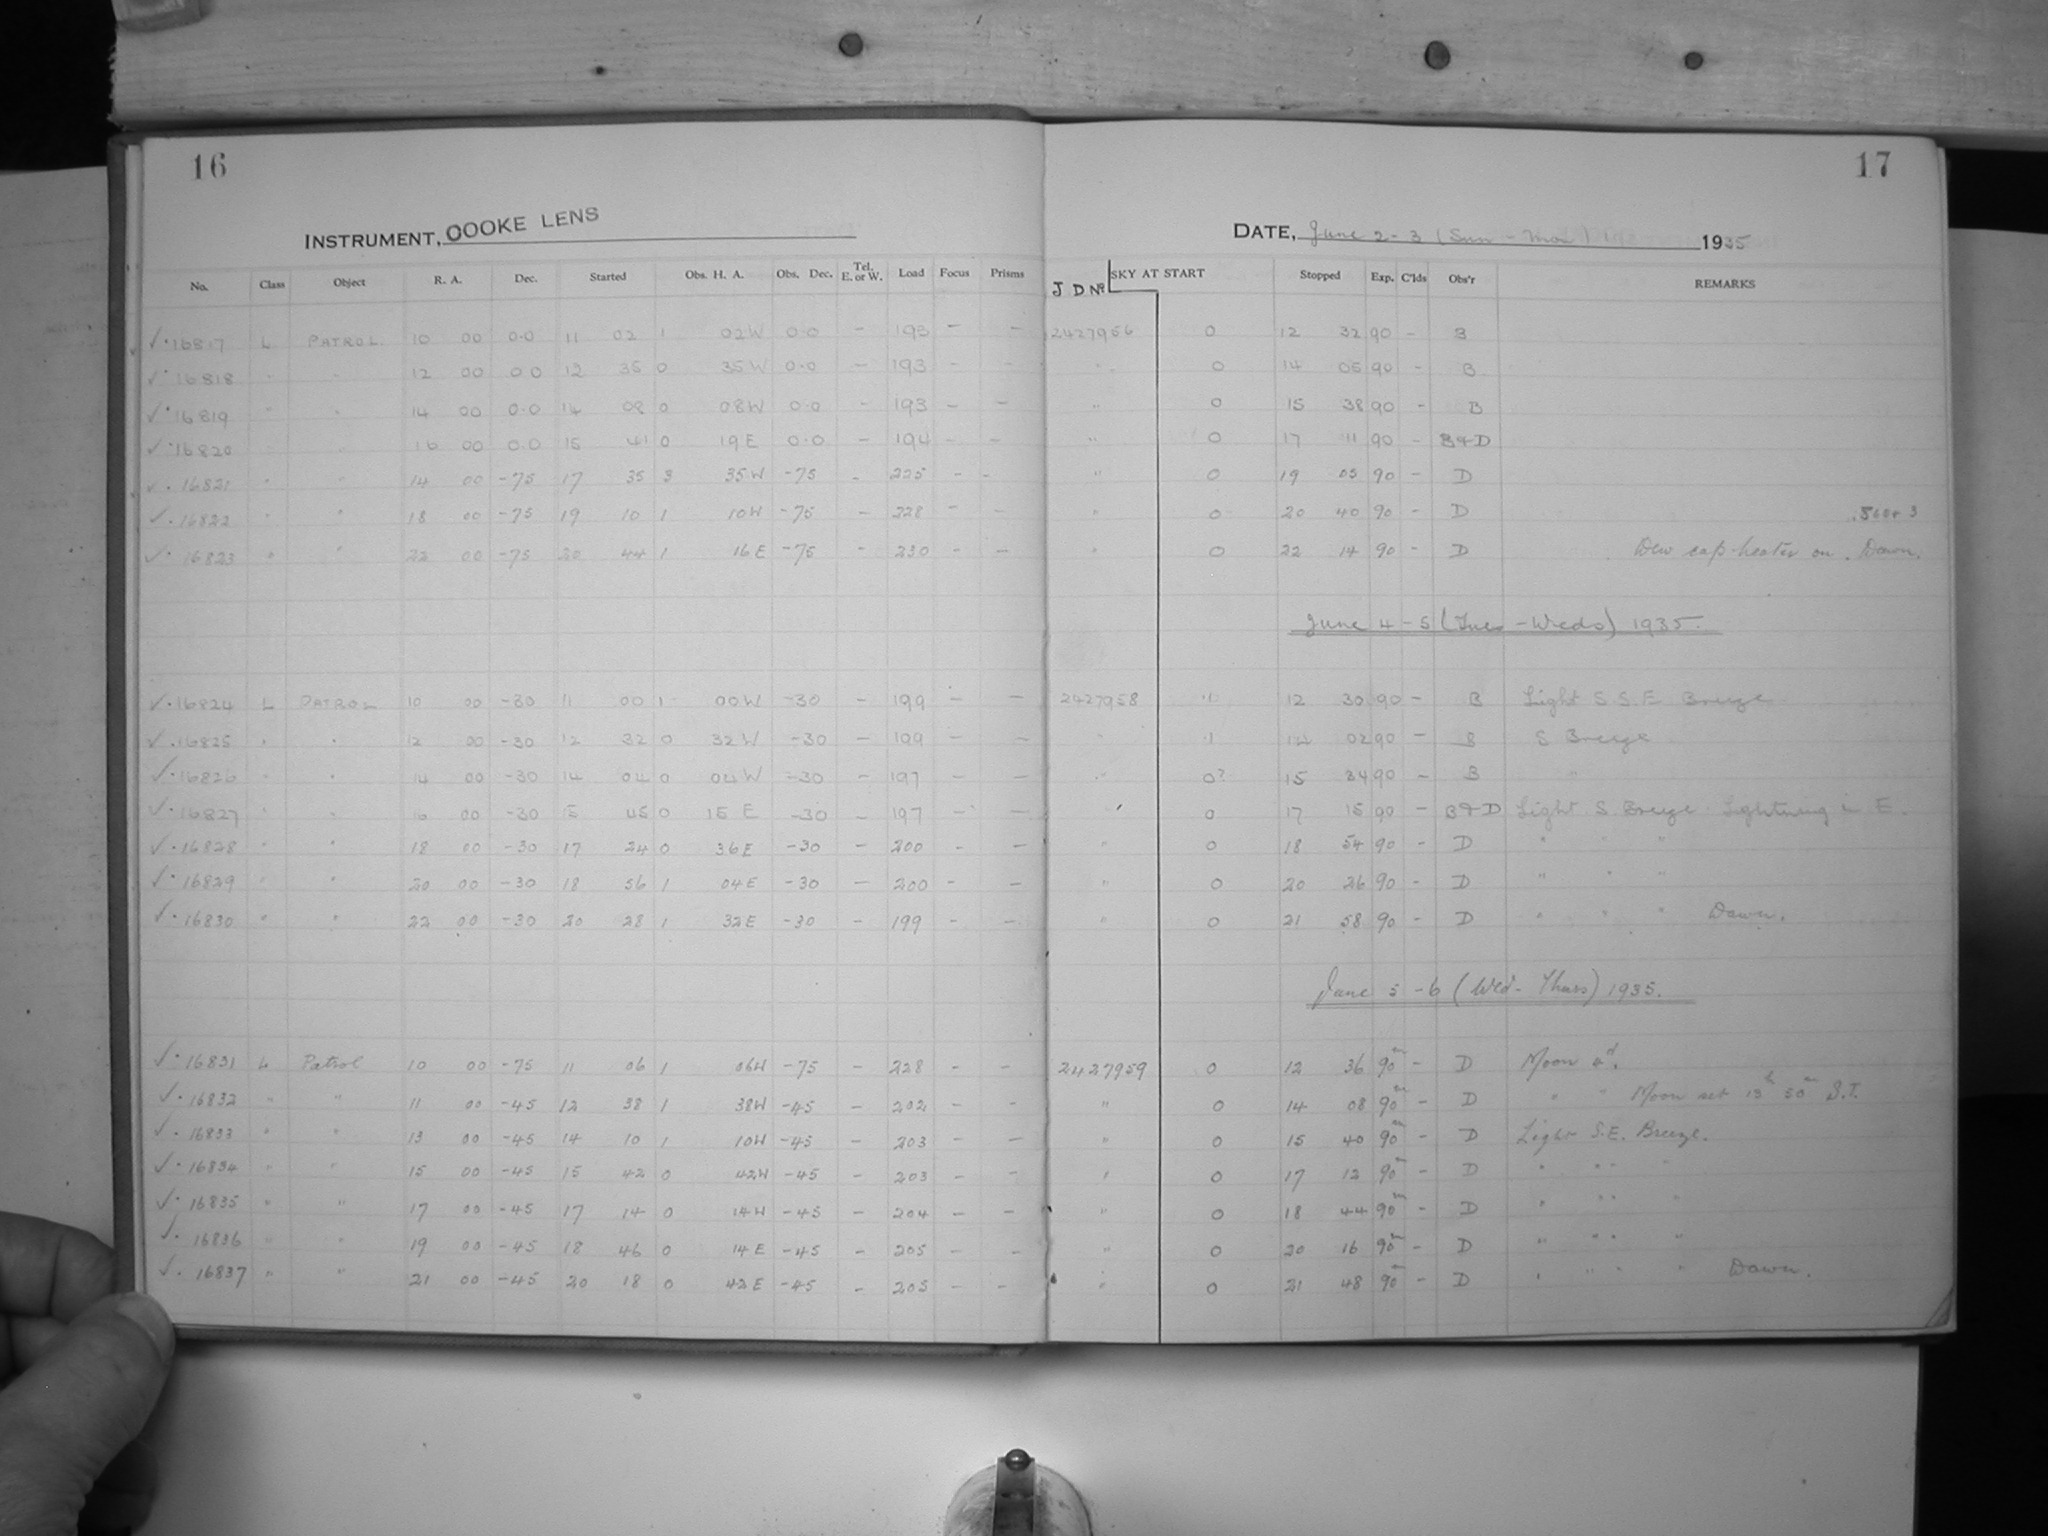 16
17
INSTRUMENT, COOKE LENS
DATE, June 2-3 (Sun - Mon) 1935
No. Class Object R. A. Dec. Started Obs. H. A. Obs. Dec. Tel. E. or W. Load Focus Prisms J D No SKY AT START Stopped Exp. C'lds Obs'r REMARKS
✓ · 16817 L PATROL 10 00 0.0 11 02 1 02W 0.0 - 193 - - 2427956 0 12 32 90 - B
✓ · 16818 " " 12 00 0 0 12 35 0 35W 0.0 - 193 - - " 0 14 05 90 - B
✓ · 16819 " " 14 00 0.0 14 08 0 08W 0.0 - 193 - - " 0 15 38 90 - B
✓ · 16820 " " 16 00 0.0 15 41 0 19E 0.0 - 194 - - " 0 17 11 90 - B+D
✓ · 16821 " " 14 00 -75 17 35 3 35W -75 - 225 - - " 0 19 05 90 - D
✓ · 16822 " " 18 00 -75 19 10 1 10W -75 - 228 - - " 0 20 40 90 - D
✓ · 16823 " " 22 00 -75 20 44 1 16E -75 - 230 - - " 0 22 14 90 - D Dew cap heater on. Dawn.
June 4-5 (Tues - Weds) 1935.
✓ · 16824 L PATROL 10 00 -30 11 00 1 00W -30 - 199 - - 2427958 ·1 12 30 90 - B Light S S.E Breeze
✓ · 16825 " " 12 00 -30 12 32 0 32W -30 - 199 - - " ·1 14 02 90 - B S Breeze
✓ · 16826 " " 14 00 -30 14 04 0 04W -30 - 197 - - " 0? 15 34 90 - B "
✓ · 16827 " " 16 00 -30 15 45 0 15 E -30 - 197 - - " 0 17 15 90 - B+D Light S. Breeze Lightning in E.
✓ · 16828 " " 18 00 -30 17 24 0 36E -30 - 200 - - " 0 18 54 90 - D " " "
✓ · 16829 " " 20 00 -30 18 56 1 04E -30 - 200 - - " 0 20 26 90 - D " " "
✓ · 16830 " " 22 00 -30 20 28 1 32E -30 - 199 - - " 0 21 58 90 - D " " " Dawn.
June 5-6 (Wed - Thurs) 1935.
✓ · 16831 L Patrol 10 00 -75 11 06 1 06W -75 - 228 - - 2427959 0 12 36 90m - D Moon 4d.
✓ · 16832 " " 11 00 -45 12 38 1 38W -45 - 202 - - " 0 14 08 90m - D " " Moon set 13h 50m S.T.
✓ · 16833 " " 13 00 -45 14 10 1 10W -45 - 203 - - " 0 15 40 90m - D Light S.E. Breeze.
✓ · 16834 " " 15 00 -45 15 42 0 42W -45 - 203 - - " 0 17 12 90m - D " " " "
✓ · 16835 " " 17 00 -45 17 14 0 14W -45 - 204 - - " 0 18 44 90m - D " " " "
✓ · 16836 " " 19 00 -45 18 46 0 14E -45 - 205 - - " 0 20 16 90m - D " " " "
✓ · 16837 " " 21 00 -45 20 18 0 42E -45 - 205 - - " 0 21 48 90m - D " " " " Dawn.